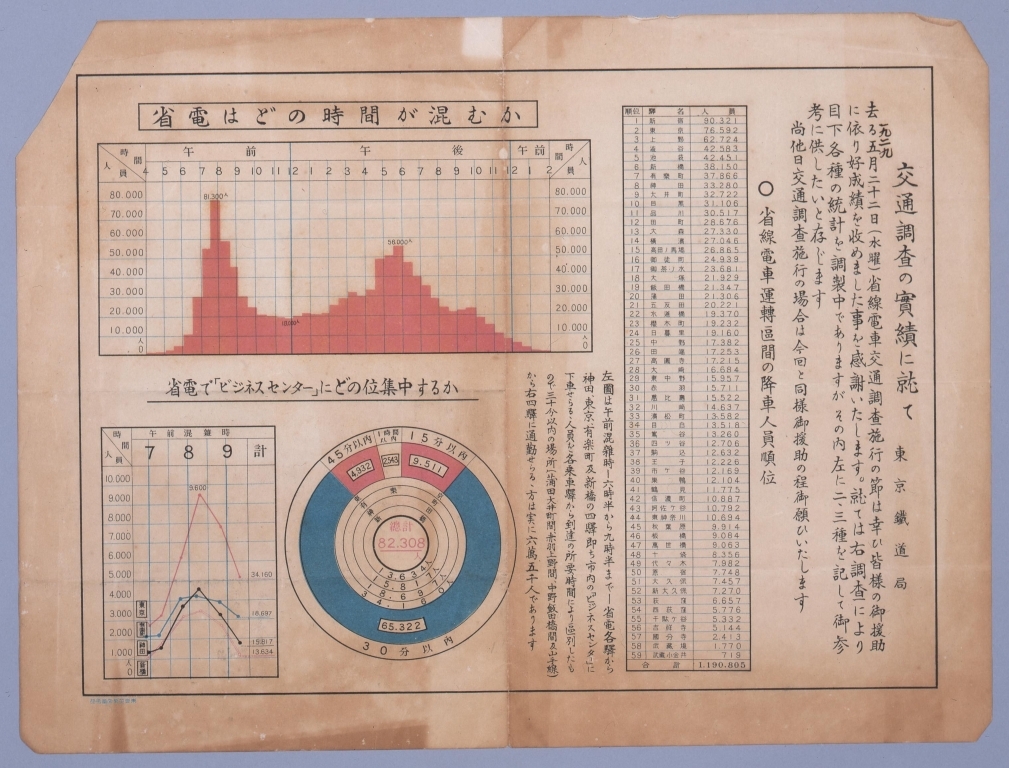 交通調査の實績に就て
東京鐵道局
一九二九
去る五月二十二日(水曜)省線電車交通調査施行の節は幸ひ皆様の御援助
に依り好成績を收めました事を感謝いたします。就ては右調査により
目下各種の統計を調製中でありますがその内左に二、三種を記して御參
考に供したいと存じます
尚他日交通調査施行の場合は今回と同様御援助の程御願ひいたします
○ 省線電車運轉區間の降車人員順位
順位 驛名 人員
1 新宿 90.321
2 東京 76.592
3 上野 62.724
4 澁谷 42.583
5 池袋 42.451
6 新橋 38.150
7 有樂町 37.866
8 神田 33.280
9 大井町 32.722
10 目黑 31.106
11 品川 30.517
12 田町 28.676
13 大森 27.330
14 橫濱 27.046
15 高田ノ馬場 26.865
16 御徒町 24.939
17 御茶ノ水 23.681
18 大塚 21.929
19 飯田橋 21.347
20 蒲田 21.306
21 五反田 20.221
22 水道橋 19.370
23 櫻木町 19.232
24 日暮里 19.160
25 中野 17.382
26 田端 17.253
27 高圓寺 17.215
28 大崎 16.684
29 東中野 15.957
30 赤羽 15.711
31 惠比壽 15.522
32 川崎 14.637
33 濱松町 13.582
34 目白 13.518
35 鶯谷 13.260
36 四ツ谷 12.706
37 駒込 12.692
38 王子 12.226
39 市ケ谷 12.169
40 巢鴨 12.104
41 鶴見 11.775
42 信濃町 10.887
43 阿佐ケ谷 10.792
44 東神奈川 10.694
45 秋葉原 9.914
46 板橋 9.084
47 萬世橋 9.063
48 十條 8.356
49 代々木 7.982
50 原宿 7.748
51 大久保 7.457
52 新大久保 7.270
53 荻窪 6.657
54 西荻窪 5.776
55 千駄ケ谷 5.332
56 吉祥寺 5.144
57 國分寺 2.413
58 武藏境 1.770
59 武藏小金井 719
合計 1.190.805
省電はどの時間が混むか
時間 人員 午前 午後 午前 時間 人員
4 5 6 7 8 9 10 11 12 1 2 3 4 5 6 7 8 9 10 11 12 1 2
80.000 80.000
70.000 70.000
60.000 60.000
50.000 50.000
40.000 40.000
30.000 30.000
20.000 20.000
10.000 10.000
人0 人0
81.300人
56.000人
省電で「ビジネスセンター」にどの位集中するか
時間 人員 午前混雜時 計
7 8 9
10.000
9.000
8.000
7.000
6.000
5.000
4.000
3.000
2.000
1.000
人0
9.600
34.160
16.697
19.817
13.634
東京
有樂町
神田
新橋
45分以内
1時間以内
15分以内
30分以内
4.932
2.543
9.511
65.322
總計
82.308人
左圖は午前混雜時―六時半から九時半まで―省電各驛から
神田、東京、有樂町及新橋の四驛即ち市内の「ビジネスセンター」に
下車せらるゝ人員を各乘車驛から到達の所要時間により區別したも
ので三十分以内の場所(蒲田大井町間、赤羽上野間、中野飯田橋間及山手線)
から右四驛に通勤せらるゝ方は實に六萬五千人であります